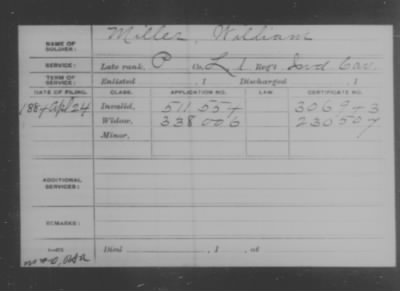 NAME OF SOLDIER: Miller, William
SERVICE: Late rank, P Co. L 1 Reg't Ind Cav.
TERM OF SERVICE: Enlisted , 1 Discharged , 1
DATE OF FILING. CLASS. APPLICATION NO. LAW. CERTIFICATE NO.
1884 Apl 24 Invalid, 511 554 306943
Widow, 338 006 230507
Minor,
ADDITIONAL SERVICES:
REMARKS:
Died , 1 , at